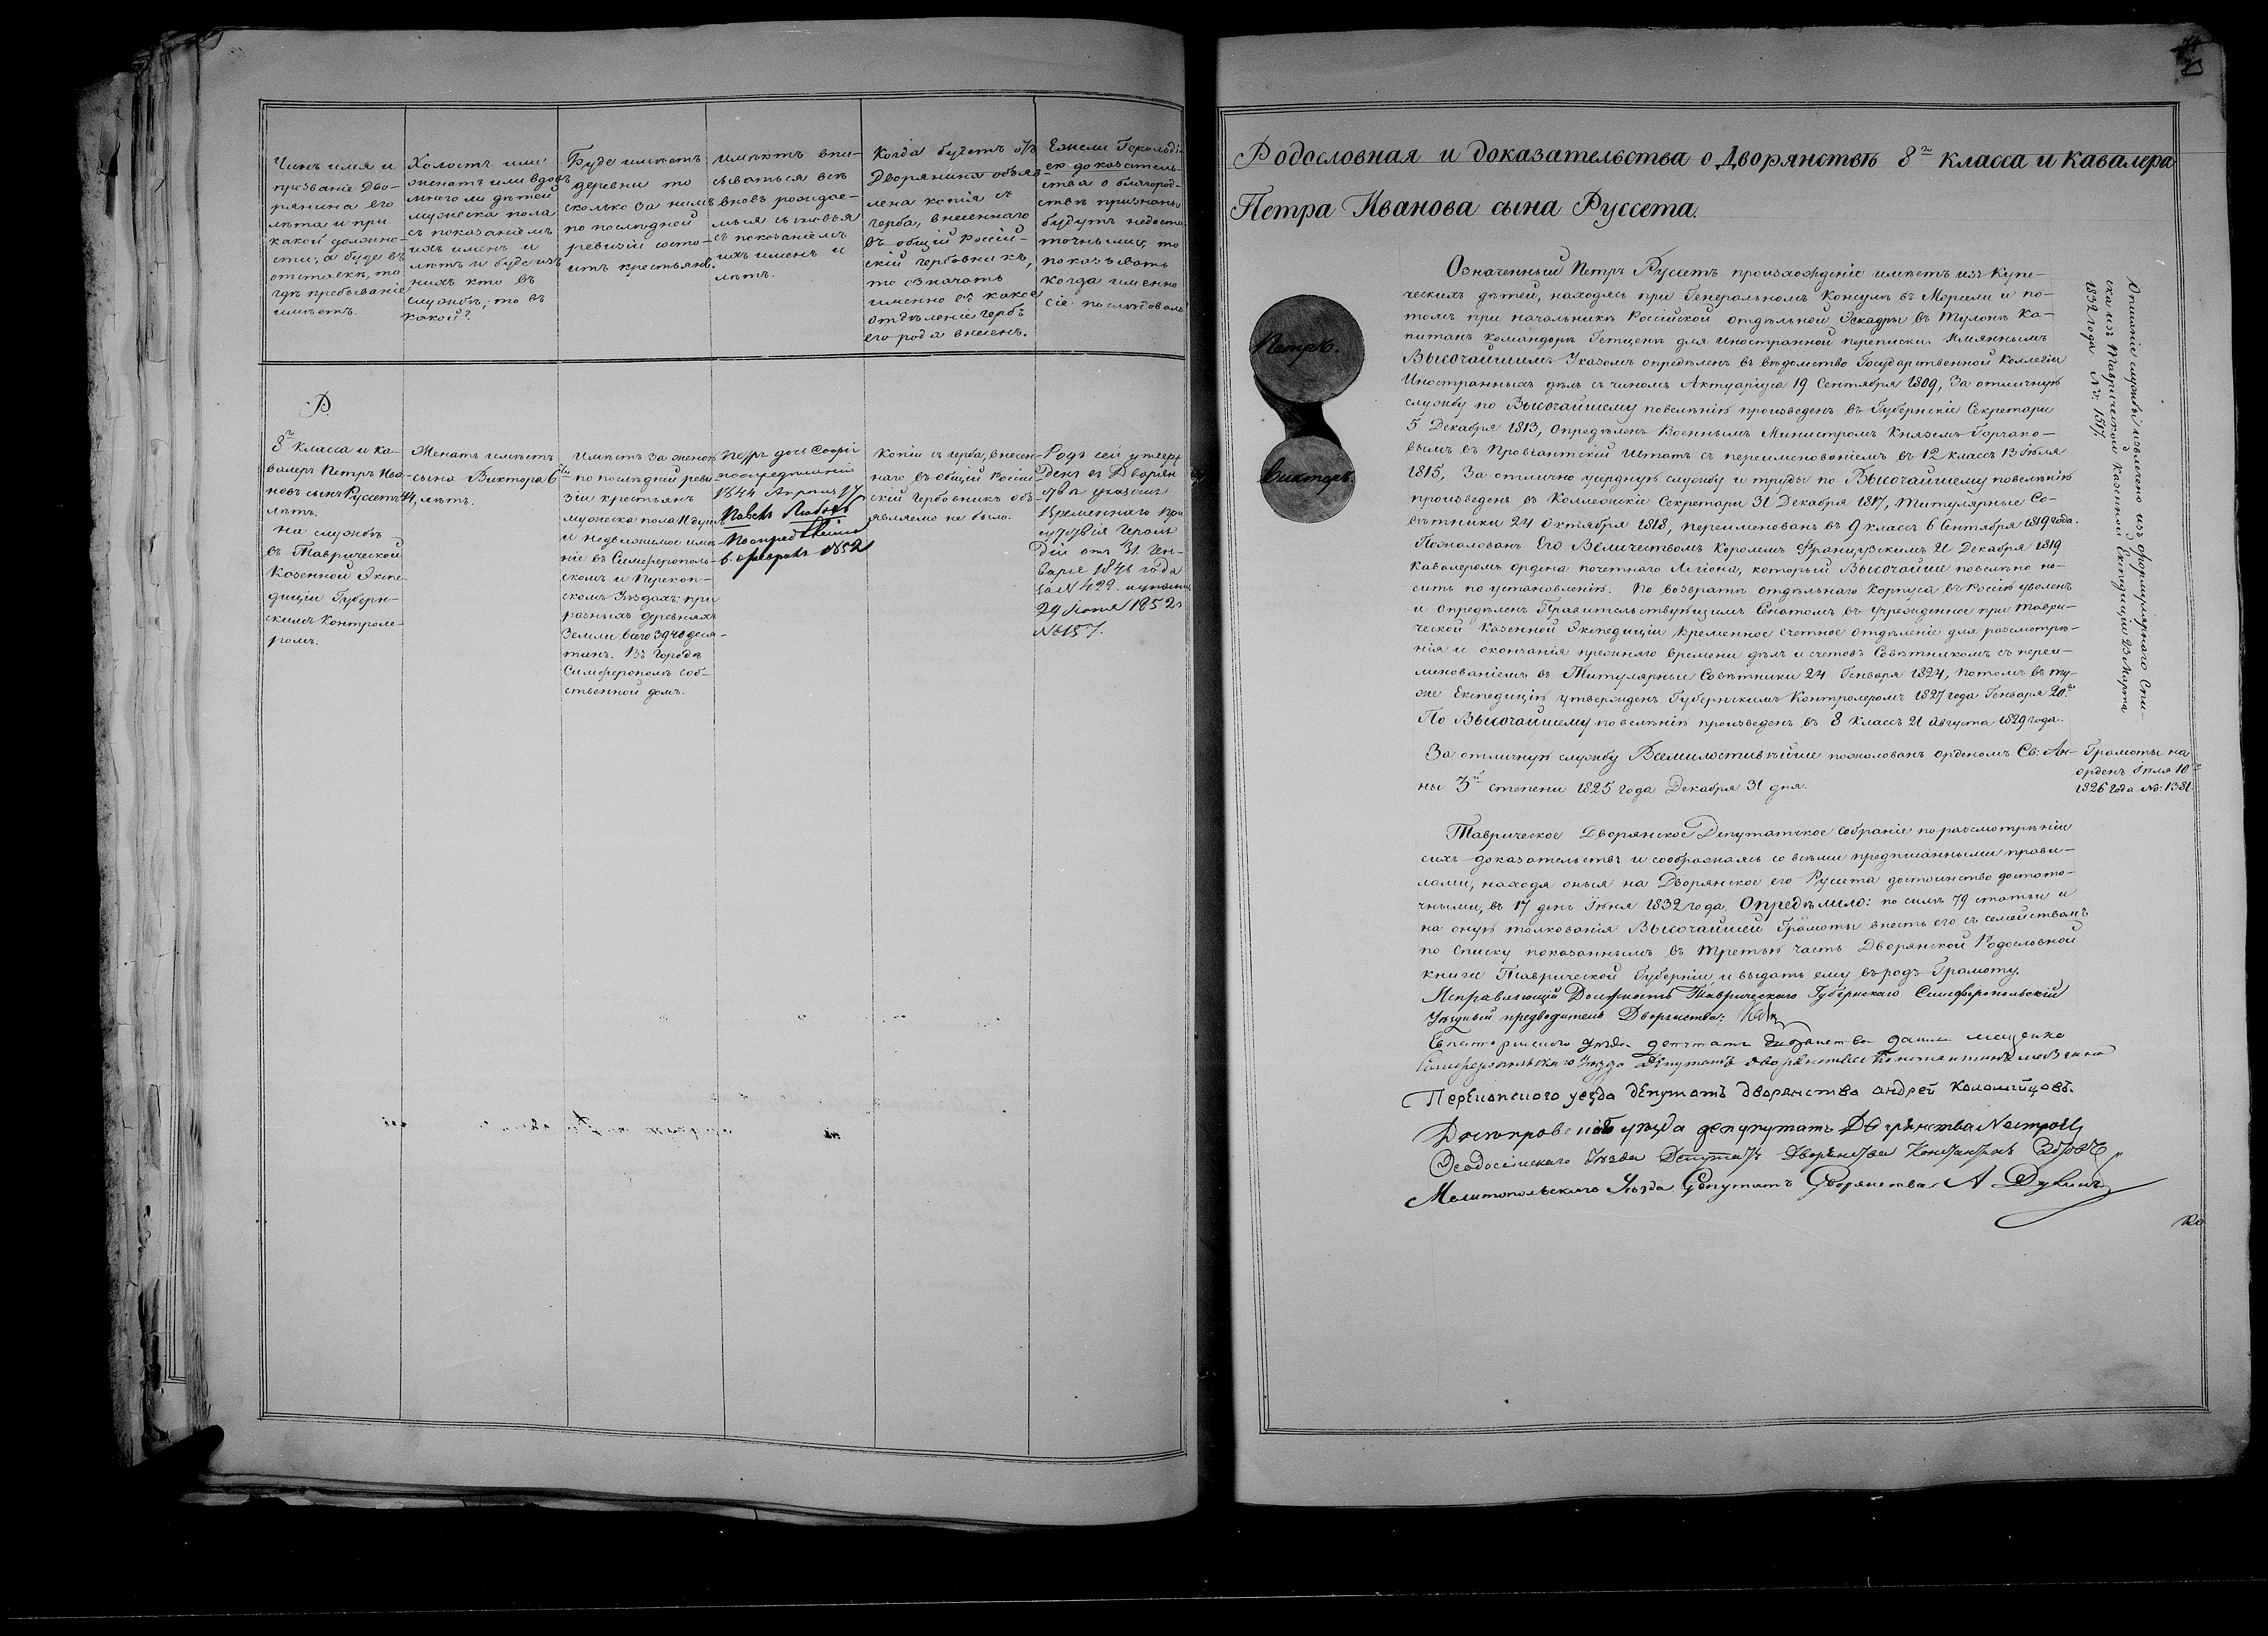 Чинъ имя и
прозваніе Дво-
рянина его
лѣта и при
какой должно-
сти, а буде въ
отставкѣ, то
гдѣ пребываніе
имѣетъ.
Холостъ или
женатъ или вдовъ
много ли дѣтей
мужеска пола
съ показаніемъ
ихъ именъ и
лѣтъ и буде изъ
нихъ кто въ
службѣ, то въ
какой?
Буде имѣетъ
деревни то
сколько за нимъ
по послѣдней
ревизіи состо-
итъ крестьянъ.
Имѣютъ впи-
сываться всѣ
вновь рождае-
мыя сыновья
съ показаніемъ
ихъ именъ и
лѣтъ.
Когда будетъ отъ
Дворянина объяв-
лена копія съ
герба, внесеннаго
въ общій Россій-
скій гербовникъ,
то означать
именно въ какое
отдѣленіе гербъ
его рода внесенъ.
Ежели Герольді-
ею доказатель-
ства о благород-
ствѣ признаны
будутъ недоста
точными, то
показывать
когда именно
сіе послѣдовало
Р.
8го класса и ка-
валеръ Петръ Ива-
новъ сынъ Руссетъ 44,
лѣтъ.
на службѣ
въ Таврической
Казенной Экспе-
диціи Губерн-
скимъ Контроле-
ромъ.
Женатъ имѣетъ
сына Виктора 6
лѣтъ.
Имѣетъ за женою
по послѣдней реви-
зіи крестьянъ
мужеска пола 11 душъ
и недвижимое имѣ-
ніе въ Симферополь-
скомъ и Перекоп-
скомъ Уѣздахъ: при
разныхъ деревняхъ
Земли всего 3940 деся-
тинъ. Въ городѣ
Симферополѣ соб-
ственной домъ.
дочь Софія
1844 Апрѣля 17
Павелъ Любовь
6. февраля 1852
Копіи съ герба, внесен-
наго въ общій Россій-
скій Гербовникъ объ-
являемо не было.
Родъ сей утверж
денъ въ Дворян
ствѣ указомъ
Временнаго При
сутствія Героль
діи отъ 31. Ген-
варя 1848 года
за N 422. и указомъ
24 Іюня 1852 г
№ 6157.
Родословная и доказательства о Дворянствѣ 8го класса и Кавалера
Петра Иванова сына Руссета.
Петръ.
Викторъ.
Означенный Петръ Руссетъ произхожденіе имѣетъ изъ Купе-
ческихъ дѣтей, находясь при Генеральномъ Консулѣ въ Марсели и по-
томъ при начальникѣ Россійской отдѣльной Эскадры въ Тулонѣ Ка-
питанъ Командорѣ Гетценѣ для иностранной переписки. Имяннымъ
Высочайшимъ Указомъ опредѣленъ въ вѣдомство Государственной Коллегіи
Иностранныхъ дѣлъ съ чиномъ Актуаріуса 19 Сентября 1809, За отличную
службу по Высочайшему повелѣнію произведенъ въ Губернскіе Секретари
5 Декабря 1813, Опредѣленъ Военнымъ Министромъ Княземъ Горчако-
вымъ въ Провіантскій Штатъ съ переименованіемъ въ 12 классъ 13 Іюля
1815, За отлично усердную службу и труды по Высочайшему повелѣнію
произведенъ въ Коллежскіе Секретари 31 Декабря 1817, Титулярные Со-
вѣтники 24 Октября 1818, переименованъ въ 9 классъ 6 Сентября 1819 года.
Пожалованъ Его Величествомъ Королемъ Французскимъ 21 Декабря 1819
Кавалеромъ Ордена почетнаго Легіона, который Высочайше повелѣно но-
сить по установленію. По возвратѣ отдѣльнаго Корпуса въ Россію уволенъ
и опредѣленъ Правительствующимъ Сенатомъ въ учрежденное при Таври-
ческой Казенной Экспедиціи временное счетное отдѣленіе для разсмотрѣ-
нія и окончанія прежняго времени дѣлъ и счетовъ Совѣтникомъ съ переи-
менованіемъ въ Титулярные Совѣтники 24 Генваря 1824, потомъ въ ту-
же Експедицію утвержденъ Губернскимъ Контролеромъ 1827 года Генваря 20го
По Высочайшему повелѣнію произведенъ въ 8 классъ 21 Августа 1829 года.
Описаніе службы извлечено изъ формулярнаго Спи-
ска изъ Таврической Казенной Експедиціи 23 Марта
1832 года No: 1517.
За отличную службу Всемилостивѣйше пожалованъ орденомъ Св: Ан-
ны 3й степени 1825 года Декабря 31 дня.
Грамоты на
орденъ Іюля 10го
1826 года No: 1381.
Таврическое Дворянское Депутатское Собраніе по разсмотрѣніи
сихъ доказательствъ и сообразяясь со всѣми предписанными прави-
лами, находя оныя на Дворянское его Руссета достоинство достато-
чными, въ 17 день Іюня 1832 года, Опредѣлило: по силѣ 79 статьи и
на оную толкованія Высочайшей Грамоты внесть его съ семействомъ
по списку показаннымъ въ третью часть Дворянской Родословной
книги Таврической Губерніи, и выдать ему въ родъ Грамоту.
Исправляющій Должность Таврическаго Губернскаго Симферопольскій
Уѣздный предводитель Дворянства:
Евпаторійского уѣзда депутатъ дворянства
Симферопольскаго уѣзда Депутатъ дворянства Константинъ
Перекопского уезда депутатъ дворянства андрей Коломійцовъ.
Днепровскаго уѣзда депутатъ Дворянства
Феодосійскаго уѣзда Депутатъ Дворянства Константинъ
Мелитопольскаго Уѣзда Депутатъ Дворянства А